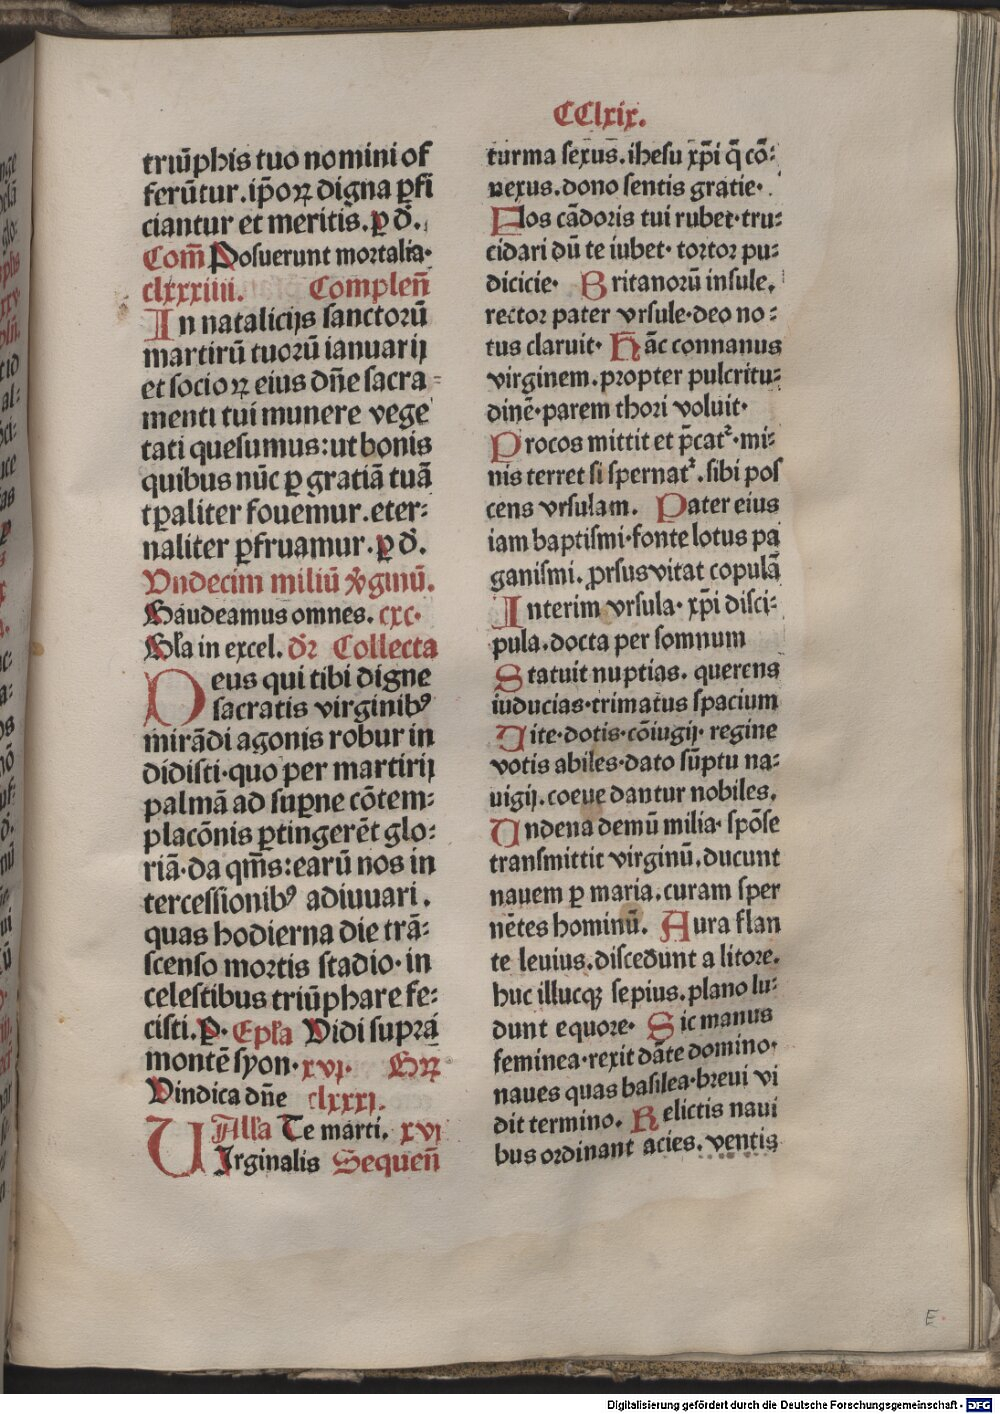 CClxix.
triūphis tuo nomini of
ferūtur. ip̄oꝝ digna ꝑfi
ciantur et meritis. ꝑ d̄.
Com̄ Posuerunt mortalia·
clxxxiiii. Complen̄
In natalicijs sanctorū
martirū tuorū ianuarij
et socioꝝ eius dn̄e sacra⸗
menti tui munere vege
tati quesumus: ut bonis
quibus nūc ꝑ gratiā tuā
tꝑaliter fouemur. eter⸗
naliter ꝑfruamur. ꝑ d̄.
Vndecim miliū v̾ginū.
Gaudeamus omnes. cxc.
Gl̄a in excel. dr̄ Collecta
Deus qui tibi digne
sacratis virginibꝰ
mirādi agonis robur in
didisti· quo per martirij
palmā ad suꝑne cōtem⸗
placōnis ꝑtingerēt glo⸗
riā· da qm̄s: earū nos in
tercessionibꝰ adiuuari.
quas hodierna die trā⸗
scenso mortis stadio· in
celestibus triūphare fe⸗
cisti. ꝑ. Ep̄la Vidi supra
montē syon· xvj. Grꝝ
Vindica dn̄e clxxxj.
All̄a Te marti. xvi
Virginalis Sequen̄
turma sexus̄. ihesu xp̄i q̄ cō⸗
nexus. dono sentis gratie·
Flos cādoris tui rubet· tru⸗
cidari dū te iubet· tortor pu⸗
dicicie· Britanorū insule.
rector pater vrsule· deo no⸗
tus claruit· Hāc connanus
virginem. propter pulcritu⸗
dinē· parem thori voluit·
Procos mittit et p̄catᷣ· mi⸗
nis terret si spernatᷣ. sibi pos
cens vrsulam. Pater eius
iam baptismi· fonte lotus pa
ganismi. ꝓrsus vitat copulā
Interim vrsula· xp̄i disci⸗
pula. docta per somnum
Statuit nuptias. querens
iuducias· trimatus spacium
Dite· dotis· cōiugij· regine
votis abiles· dato sūptu na⸗
uigij. coeue dantur nobiles.
Vndena demū milia· spōse
transmittit virginū. ducunt
nauem ꝑ maria. curam sper
nētes hominū. Aura flan
te leuius. discedunt a litore.
huc illucqꝫ sepius. plano lu⸗
dunt equore· Sic manus
feminea· rexit dāte domino·
naues quas basilea· breui vi
dit termino. Relictis naui
bus ordinant acies. ventis
E
Digitalisierung gefördert durch die Deutsche Forschungsgemeinschaft - DFG